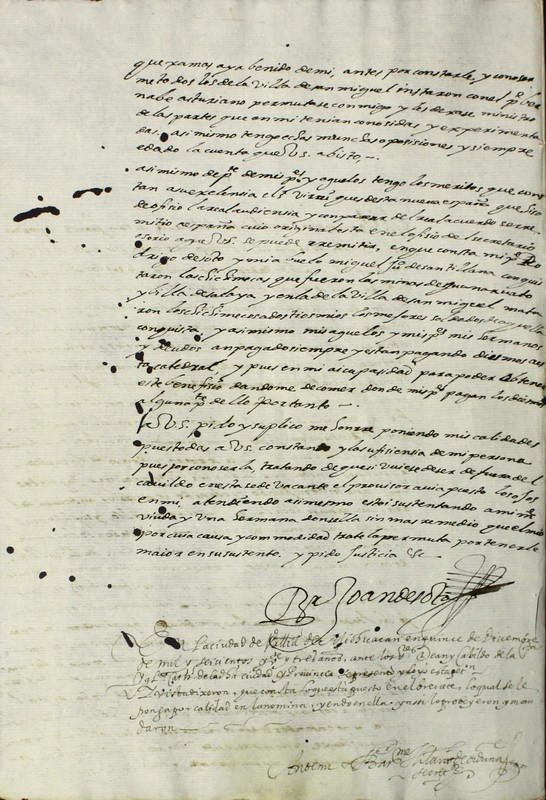 que xamas aya benido de mi, antes por constarle, y conoser
me todos los de la Villa de san miguel instaron con el pe ber
nabe asturiano permutase conmigo y les dexase ministro
de las partes que en mi tenian conosidas y experimenta
das asimismo tengo echas muchas oposisiones y siempre
e dado la cuenta que V.S. a bisto, —
asimismo de pte de mis ps y aguelos tengo los meritos que cons
tan a su exelencia el sr Virrei que desta nueva españa que hiso
de ofisio la real audiensia y con pareser de la real acuerdo se rre
mitio a españa cuio original esta en el ofisio de secretario
osorio a que V.S. se puede rremitir, en que consta mi pe Ro
drigo de soto y mi abuelo miguel de santillana conquis
taron los chichimecas que fueron las minas de guanaxuato
y billa de salaya y en la de la Villa de san miguel mata
ron los chichimecas a dos tios mios los mejores soldados de aquella
conquista y asimismo mis aguelos y mis ps mis hermanos
y deudos an pagado siempre y estan pagando diesmos a es
ta catedral, y pues en mi ai capasidad para poder obtener
este benefisio dandome de comer donde mis ps pagan los diesmos
alguna pte de ello Por tanto —
A V.S. pido y suplico me honrre poniendo mis calidades
puestodas a V.S. constan y la sufisiensia de mi persona
pues por conoserla, tratando de que si uviese de ser de fuera del
cavildo en esta sede vacante el provisor avia puesto los ojos
en mi, atendiendo asimismo estoi sustentando a mi me
viuda y Una hermana donsella sin mas remedio que el mio
i por cuia causa y comodidad trate la permuta por tenerle
maior en su sustento. y pido Justicia &c
Br Joan de soto
En la ciudad de Vallid de Mechuacan en quince de Diciembre
de mil y seicientos y te y tres años, ante los sres Dean y Cabildo de la
ygla Cath. de la dha ciudad y Provincia se presento y leyo esta peton
y vista dixeron, que consta lo que esta puesto en el, lo qual se le
ponga por calidad en la nomina, yendo en ella, y assi lo proveyeron y man
daron —
Ante mi